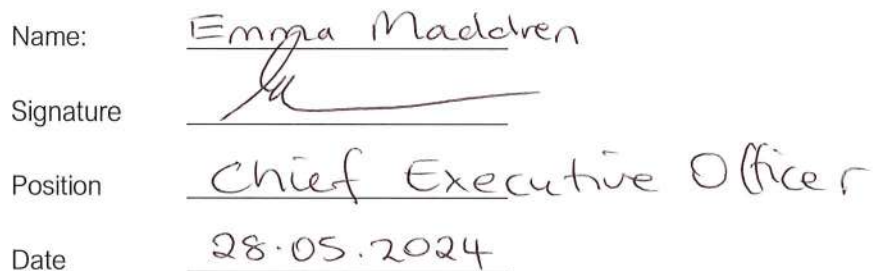 Name: Emma Maddren
Signature
Position Chief Executive Officer
Date 28.05.2024